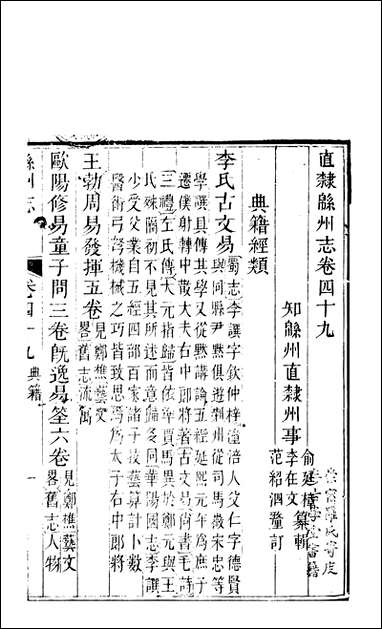 直隸緜州志卷四十九
知緜州直隸州事
俞廷樟纂輯
李在文
范紹泗釐訂
典籍經類
李氏古文易
蜀志李譔字欽仲梓潼涪人父仁字德賢
與同縣尹黙俱遊荆州從司馬徽宋忠等
學譔具傳其學又從黙講論五經延熙元年爲庶子
遷僕射轉中散大夫右中郎將著古文易尚書毛詩
三禮左氏傳太元指歸皆依準賈馬異於鄭元與王
氏殊隔初不見其所述而意歸多同華陽國志李譔
少受父業自五經四部百家諸子技藝算計卜數
醫術弓弩機械之巧皆致思焉爲太子右中郎將
王勃周易發揮五卷
見鄭樵藝文
畧舊志流寓
歐陽修易童子問三卷旣逸易筌六卷
見鄭樵藝文
畧舊志人物
緜州志
卷四十九
典籍
一